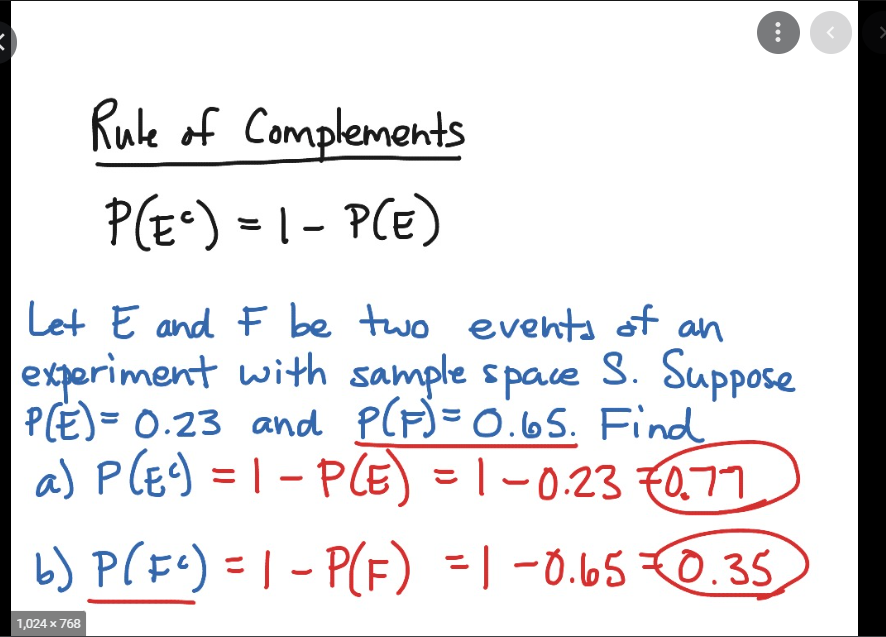 Rule of Complements
P(Eᶜ) = 1 - P(E)
Let E and F be two events of an
experiment with sample space S. Suppose
P(E) = 0.23 and P(F) = 0.65. Find
a) P(Eᶜ) = 1 - P(E) = 1 - 0.23 = 0.77
b) P(Fᶜ) = 1 - P(F) = 1 - 0.65 = 0.35
1,024 × 768